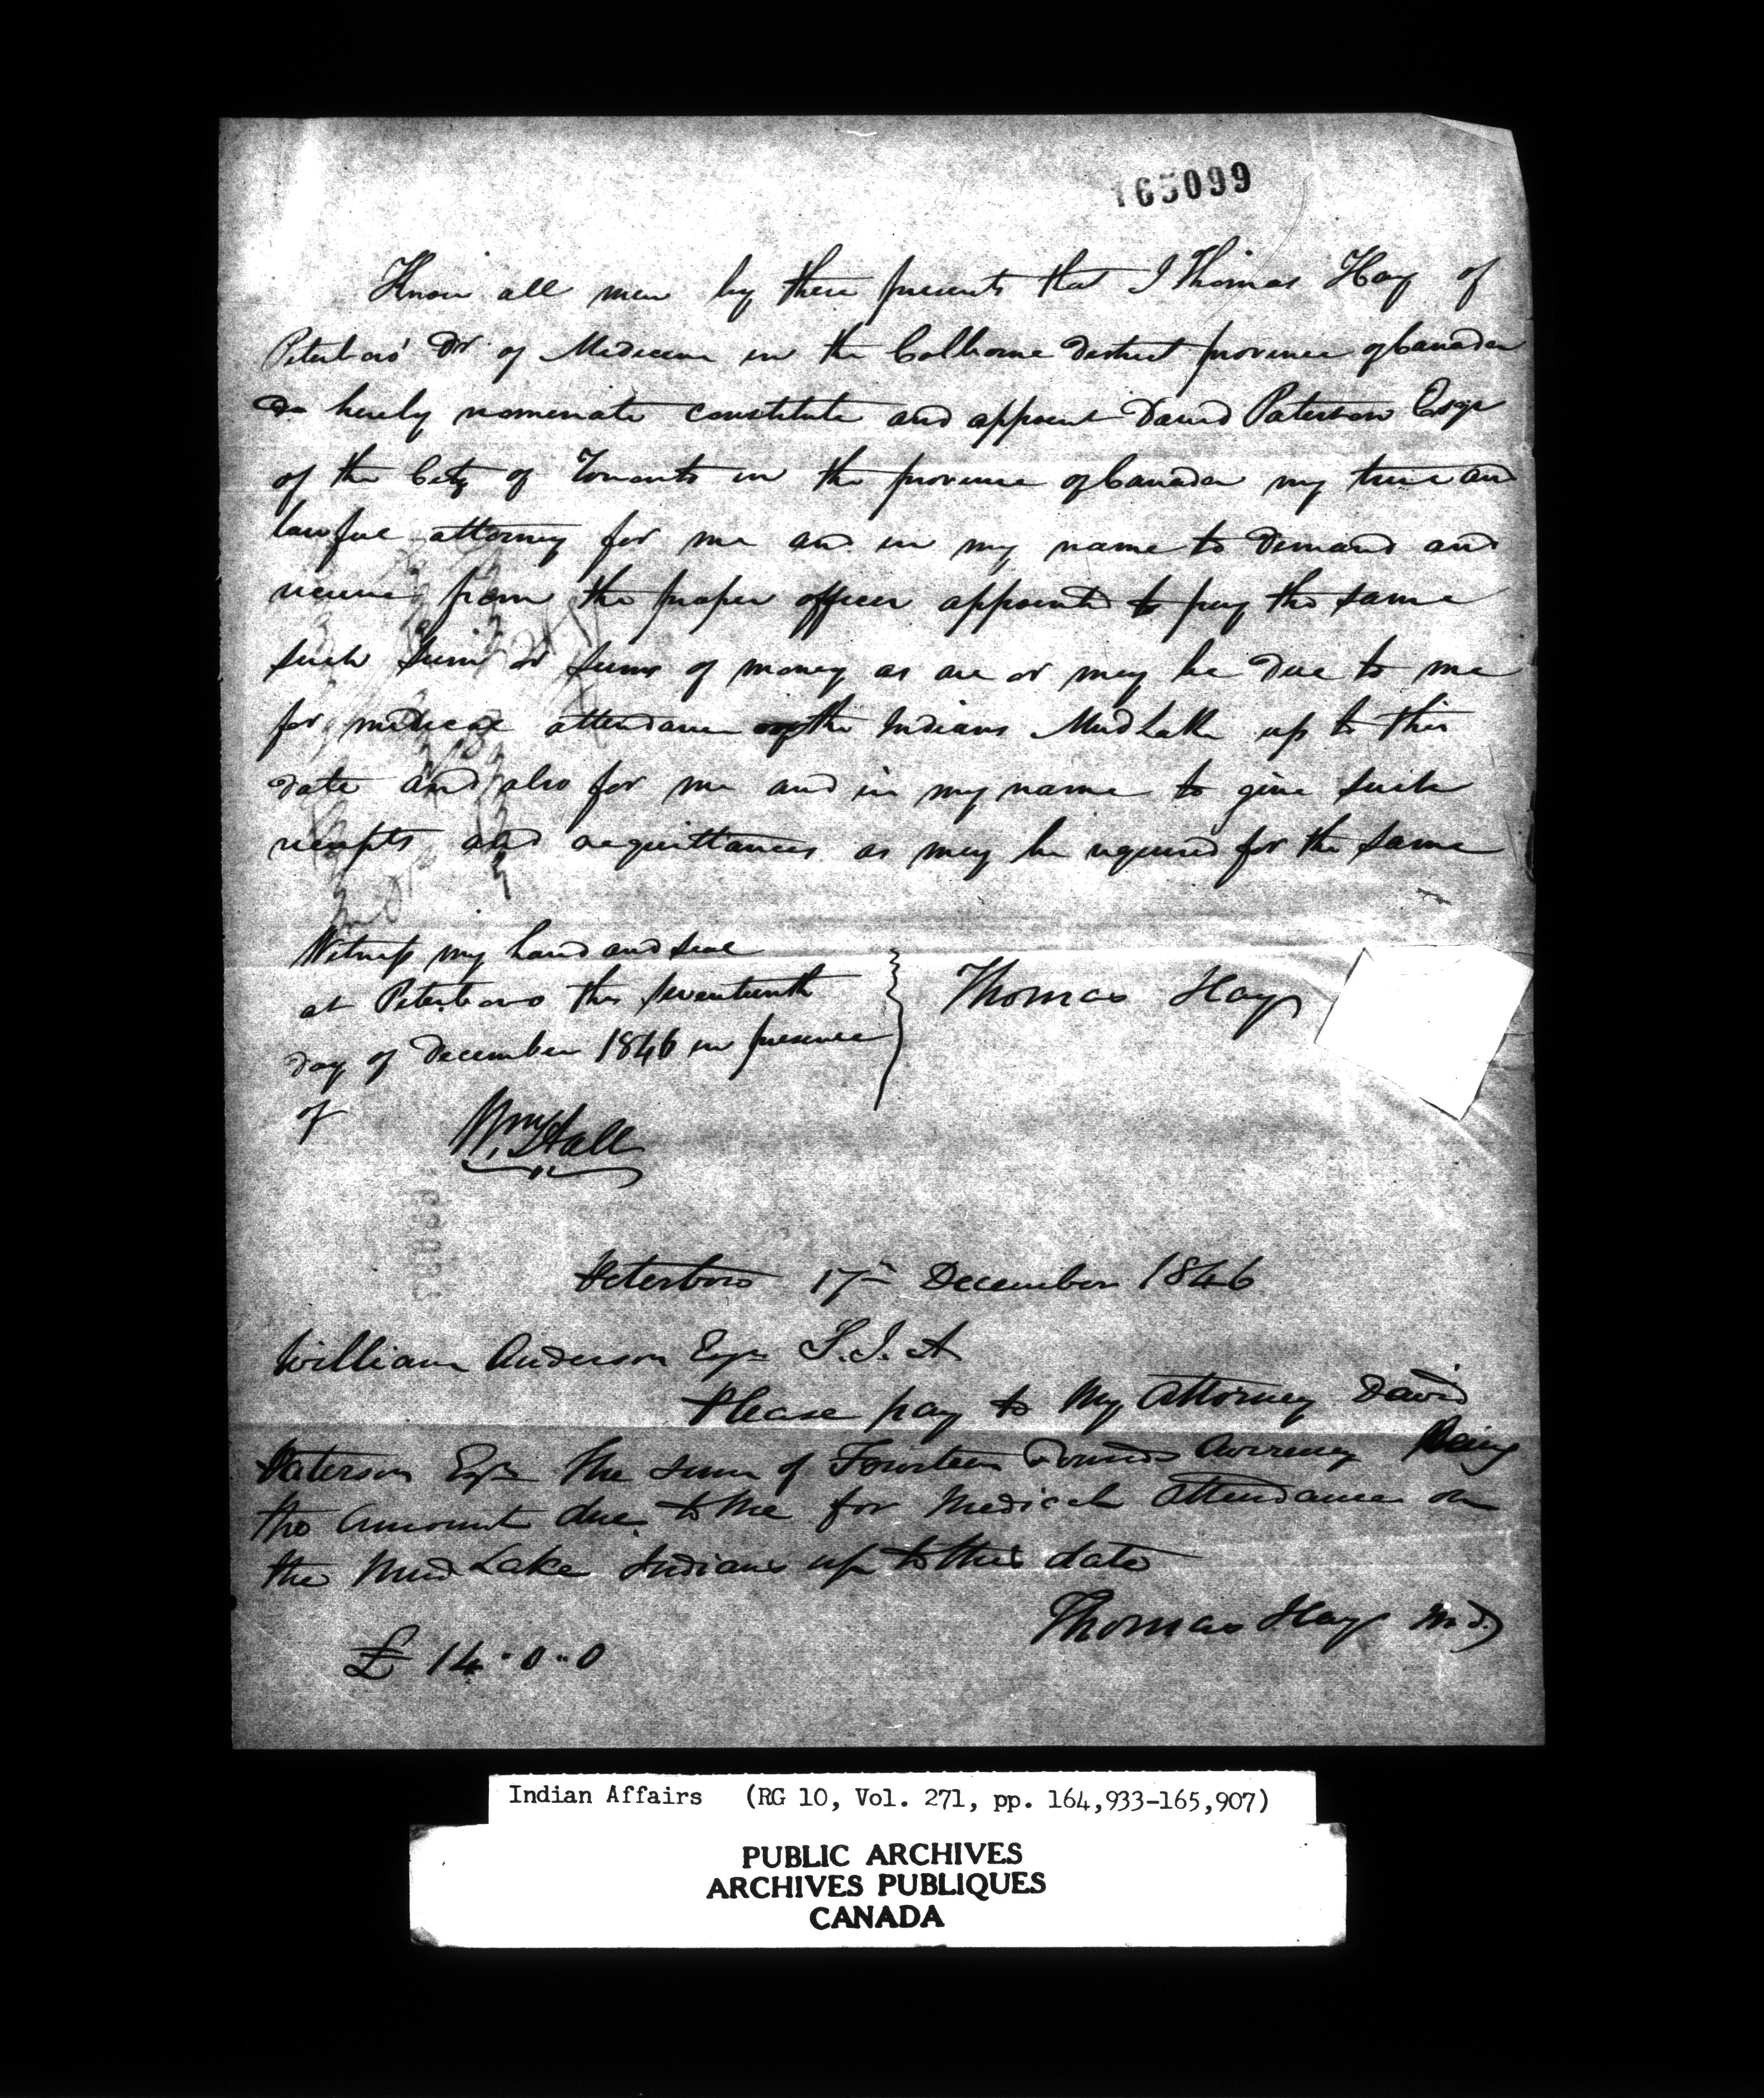 165099
Know all men by these presents that I Thomas Hay of
Peterboro' Dr of Medicine in the Colborne District province of Canada
do hereby nominate constitute and appoint David Paterson Esqr
of the City of Toronto in the province of Canada my true and
lawful attorney for me and in my name to demand and
receive from the proper officer appointed to pay the same
such sum or sums of money as are or may be due to me
for medical attendance on the Indians Mud Lake up to this
date and also for me and in my name to give such
receipts and acquittances as may be required for the same
Witness my hand and seal
at Peterboro this seventeenth
day of December 1846 in presence
of
Thomas Hay
Wm Hall
Peterboro 17th December 1846
William Anderson Esqr S.I.A
Please pay to my Attorney David
Paterson Esqr the sum of Fourteen Pounds Currency Being
the Amount due to me for Medical Attendance on
the Mud Lake Indians up to this date
Thomas Hay M.D.
£ 14 " 0 " 0
Indian Affairs (RG 10, Vol. 271, pp. 164,933-165,907)
PUBLIC ARCHIVES
ARCHIVES PUBLIQUES
CANADA